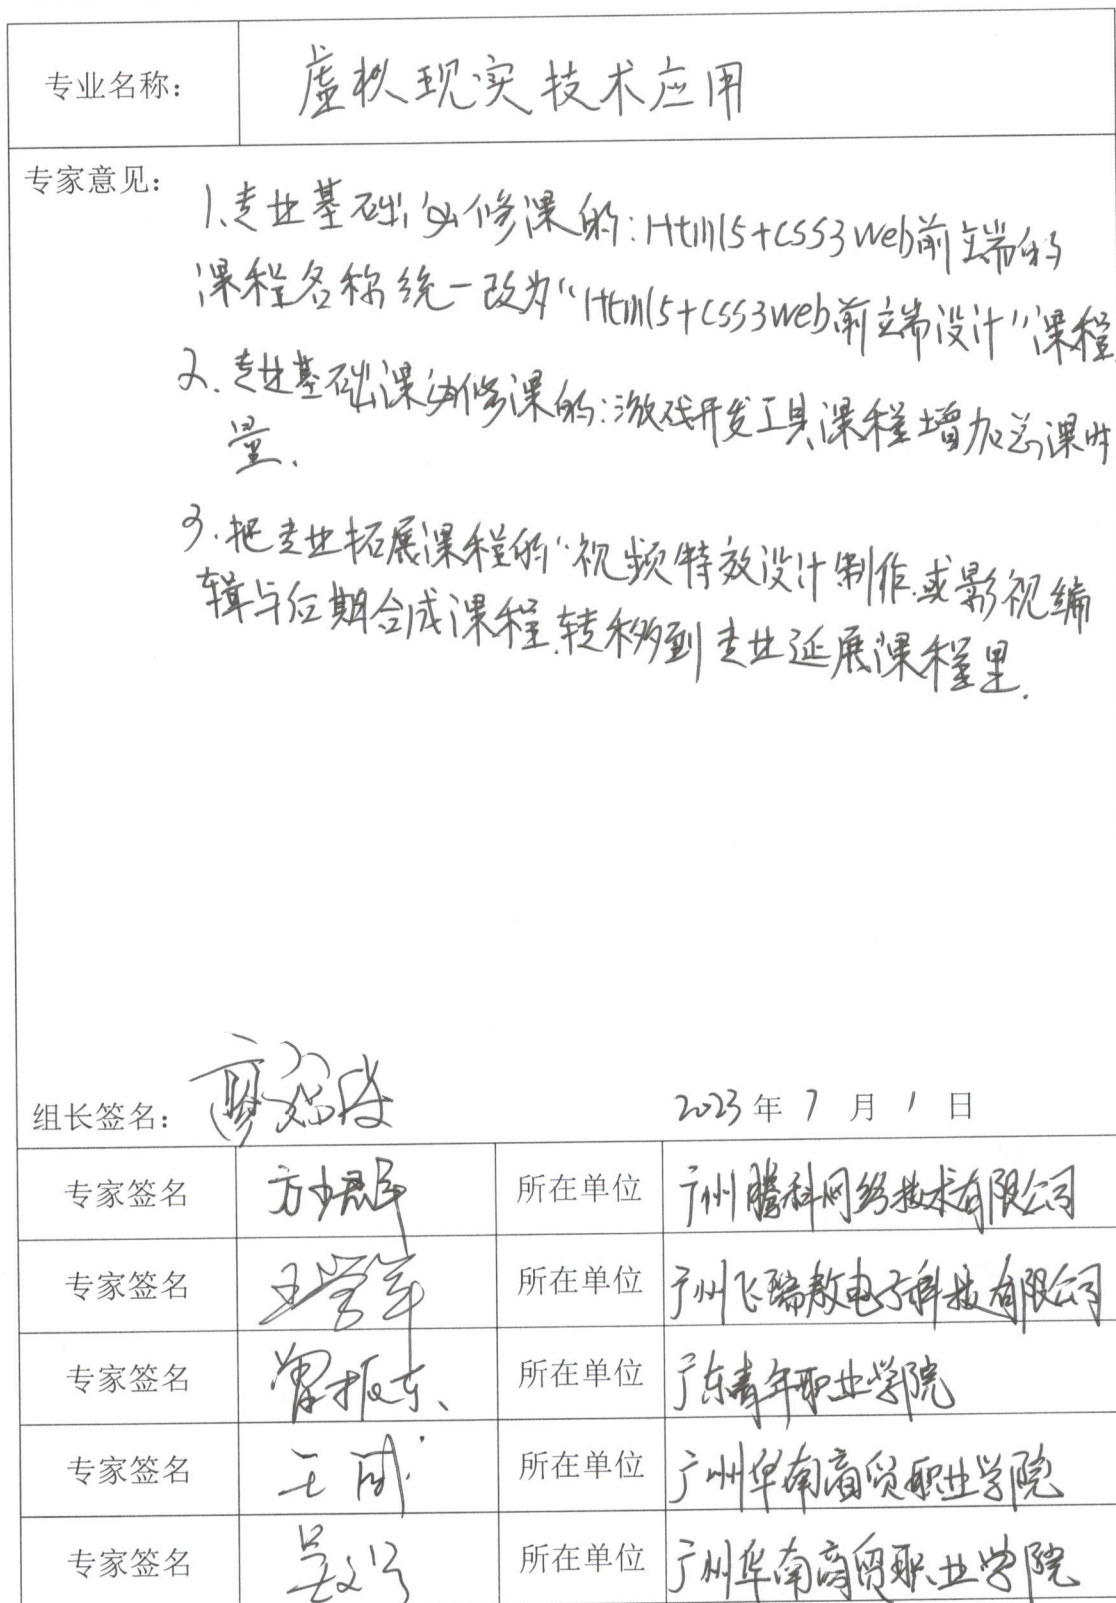 专业名称： 虚拟现实技术应用
专家意见：
1.专业基础必修课的：Html5+css3web前端的
课程名称统一改为“Html5+css3web前端设计”课程
2.专业基础课必修课的：游戏开发工具课程增加总课时
量.
3.把专业拓展课程的“视频特效设计制作.或影视编
辑与后期合成课程.转移到专业延展课程里.
组长签名： 2023年7月1日
专家签名 所在单位 广州腾科网络技术有限公司
专家签名 王学军 所在单位 广州飞瑞敖电子科技有限公司
专家签名 曾振东、 所在单位 广东青年职业学院
专家签名 所在单位 广州华南商贸职业学院
专家签名 所在单位 广州华南商贸职业学院